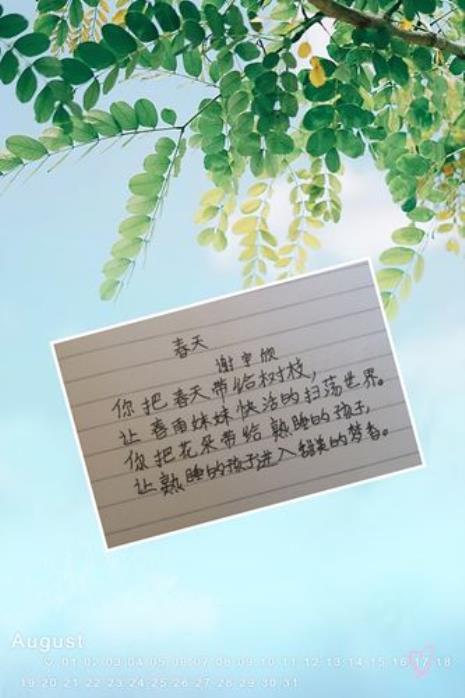 春天
谢宇欣
你把春天带给树枝，
让春雨妹妹快活的扫荡世界。
你把花朵带给熟睡的孩子，
让熟睡的孩子进入甜美的梦香。
August
01 02 03 04 05 06 07 08 09 10 11 12 13 14 15 16 17 18
19 20 21 22 23 24 25 26 27 28 29 30 31